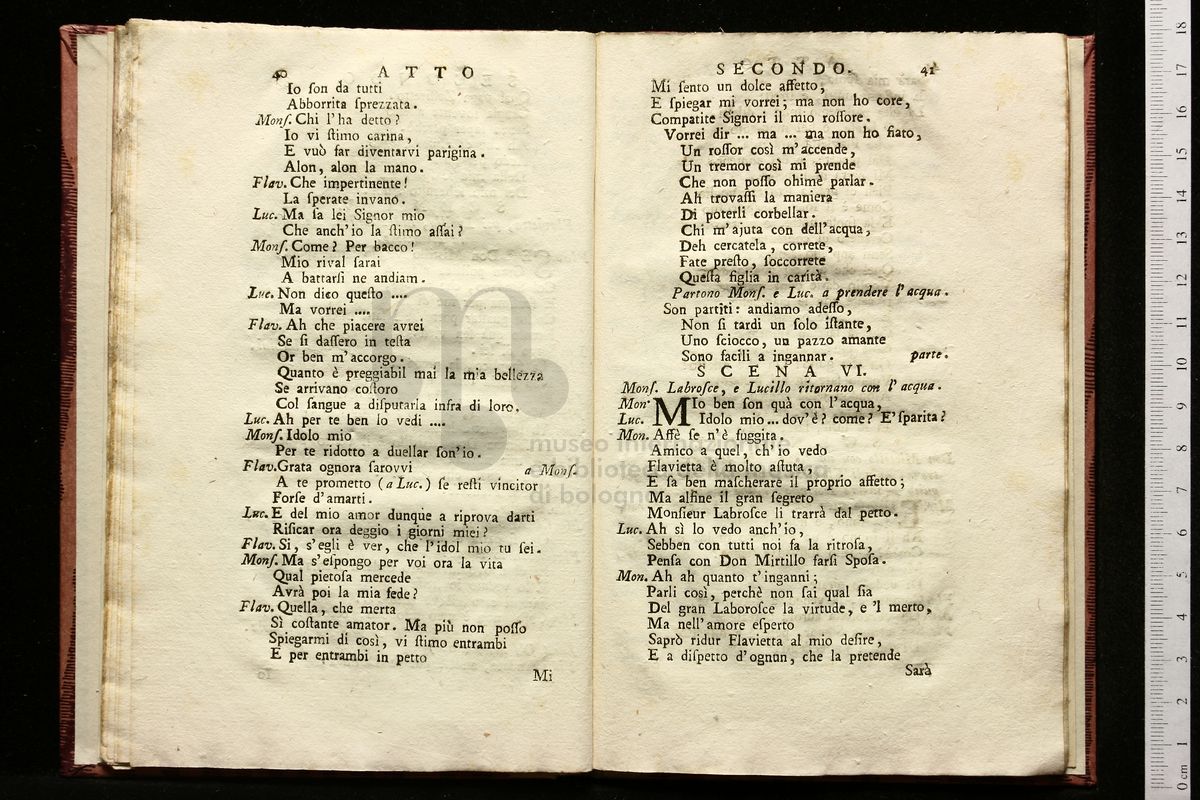 40 ATTO
Io ſon da tutti
Abborrita ſprezzata.
Monſ. Chi l'ha detto?
Io vi ſtimo carina,
E vuò far diventarvi parigina.
Alon, alon la mano.
Flav. Che impertinente!
La ſperate invano.
Luc. Ma ſa lei Signor mio
Che anch'io la ſtimo aſſai?
Monſ. Come? Per bacco!
Mio rival ſarai
A battarſi ne andiam.
Luc. Non dico queſto ....
Ma vorrei ....
Flav. Ah che piacere avrei
Se ſi daſſero in teſta
Or ben m'accorgo.
Quanto è preggiabil mai la mia bellezza
Se arrivano coſtoro
Col ſangue a diſputarla infra di loro.
Luc. Ah per te ben lo vedi ....
Monſ. Idolo mio
Per te ridotto a duellar ſon'io.
Flav. Grata ognora ſarovvi a Monſ.
A te prometto (a Luc.) ſe reſti vincitor
Forſe d'amarti.
Luc. E del mio amor dunque a riprova darti
Riſicar ora deggio i giorni miei?
Flav. Si, s'egli è ver, che l'idol mio tu ſei.
Monſ. Ma s'eſpongo per voi ora la vita
Qual pietoſa mercede
Avrà poi la mia fede?
Flav. Quella, che merta
Sì coſtante amator. Ma più non poſſo
Spiegarmi di così, vi ſtimo entrambi
E per entrambi in petto
Mi
SECONDO. 41
Mi ſento un dolce affetto,
E ſpiegar mi vorrei; ma non ho core,
Compatite Signori il mio roſſore.
Vorrei dir ... ma ... ma non ho fiato,
Un roſſor così m'accende,
Un tremor così mi prende
Che non poſſo ohimè parlar.
Ah trovaſſi la maniera
Di poterli corbellar.
Chi m'ajuta con dell'acqua,
Deh cercatela, correte,
Fate preſto, ſoccorrete
Queſta figlia in carità.
Partono Monſ. e Luc. a prendere l'acqua.
Son partiti: andiamo adeſſo,
Non ſi tardi un ſolo iſtante,
Uno ſciocco, un pazzo amante
Sono facili a ingannar. parte.
SCENA VI.
Monſ. Labroſce, e Lucillo ritornano con l'acqua.
Mon. MIo ben ſon quà con l'acqua,
Luc. Idolo mio ... dov'è? come? E' ſparita?
Mon. Affè ſe n'è fuggita.
Amico a quel, ch'io vedo
Flavietta è molto aſtuta,
E ſa ben maſcherare il proprio affetto;
Ma alfine il gran ſegreto
Monſieur Labroſce li trarrà dal petto.
Luc. Ah sì lo vedo anch'io,
Sebben con tutti noi fa la ritroſa,
Penſa con Don Mirtillo farſi Spoſa.
Mon. Ah ah quanto t'inganni;
Parli così, perchè non ſai qual ſia
Del gran Laboroſce la virtude, e 'l merto,
Ma nell'amore eſperto
Saprò ridur Flavietta al mio deſire,
E a diſpetto d'ognun, che la pretende
Sarà
museo internazionale e
biblioteca della musica
di bologna
0 cm 1 2 3 4 5 6 7 8 9 10 11 12 13 14 15 16 17 18